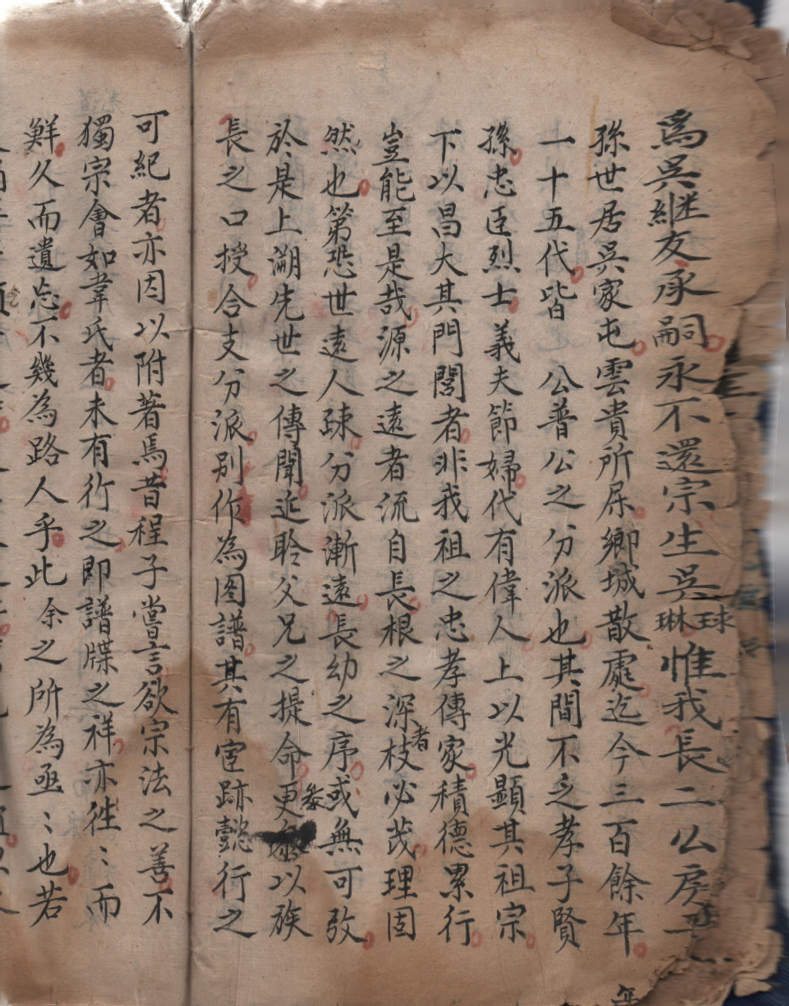 爲吳繼友承嗣永不還宗生吳球琳惟我長二公房子
孫世居吳家屯雲貴所屬鄉城散處迄今三百餘年
一十五代皆 公普公之分派也其間不乏孝子賢
孫忠臣烈士義夫節婦代有偉人上以光顯其祖宗
下以昌大其門閭者非我祖之忠孝傳家積德累行
豈能至是哉源之遠者流自長根之深者枝必茂理固
然也第恐世遠人疎分派漸遠長幼之序或無可攷
於是上溯先世之傳聞近聆父兄之提命更參以族
長之口授合支分派別作為圖譜其有宦跡懿行之
可紀者亦因以附著焉昔程子嘗言欲宗法之善不
獨宗會如韋氏者未有行之即譜牒之祥亦徃〻而
鮮久而遺忘不幾為路人乎此余之所為亟〻也若